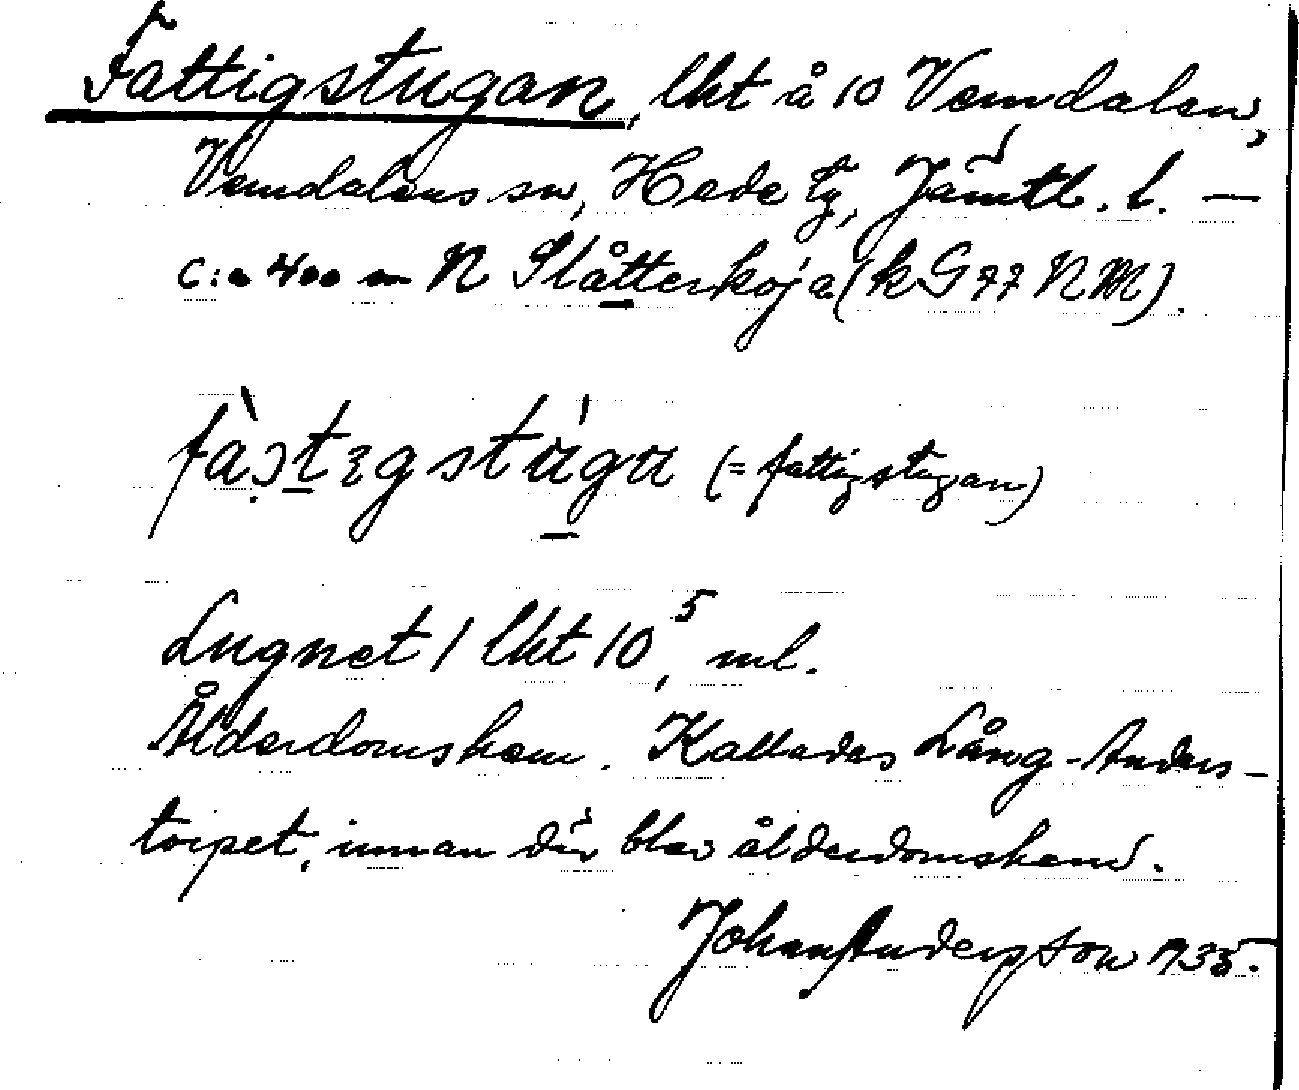 Fattigstugan, lht å 10 Vemdalen,
Vemdalens sn, Hede tg, Jämtl. l. —
c:a 400 m N Slåtterkoja (k G 77 N M).
(= fattigstugan)
Lugnet 1 lht 10⁵, ml.
Ålderdomshem. Kallades Lång-Anders-
torpet, innan där blev ålderdomshem.
Johan Andersson 1935.